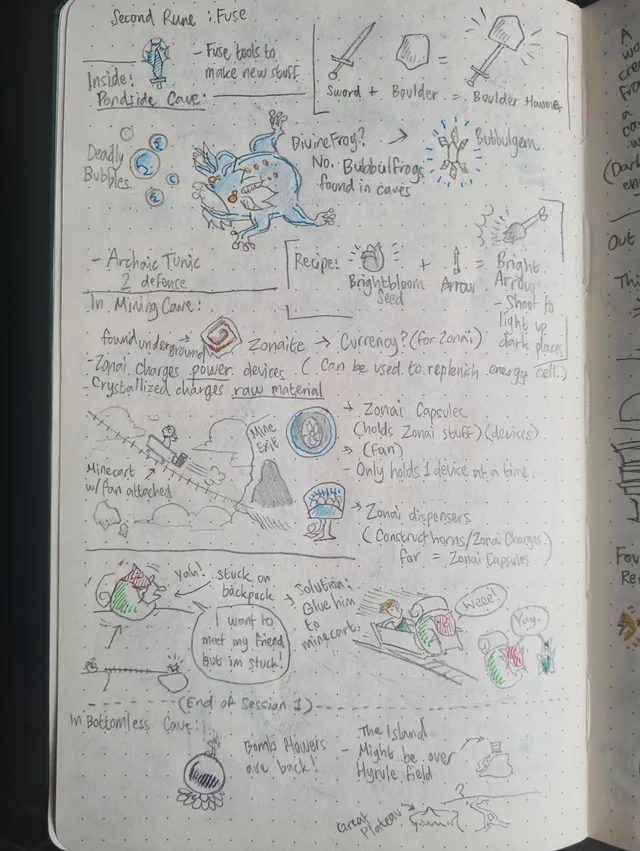 Second Rune : Fuse
- Fuse tools to
make new stuff
Sword + Boulder = Boulder Hammer
Inside:
Pondside Cave:
Deadly
Bubbles
Divine Frog?
No. Bubbulfrogs
found in caves
Bubbulgem
- Archaic Tunic
2 defence
Recipe:
Brightbloom
Seed
+
Arrow
=
Bright
Arrow
- Shoot to
light up
dark places
In Mining Cave:
found underground
Zonaite → Currency? (for Zonai)
- Zonai charges power devices. (Can be used to replenish energy cell.)
- Crystallized charges raw material
Mine
Exit
Minecart
w/ fan attached
→ Zonai Capsules
(holds Zonai stuff) (devices)
(fan)
- Only holds 1 device at a time.
→ Zonai dispensers
(Construct horns/Zonai Charges)
for = Zonai Capsules
Yah!
stuck on
backpack
I want to
meet my friend
But im stuck!
Solution:
Glue him
to
minecart.
Weee!
Yay.
(End of Session 1)
In Bottomless Cave:
Bomb flowers
are back!
The Island
- Might be over
Hyrule field
?
Great
Plateau
A
wo
cre
fro
a
ca
w
(Dark
en
Out
Thi
Fo
Re